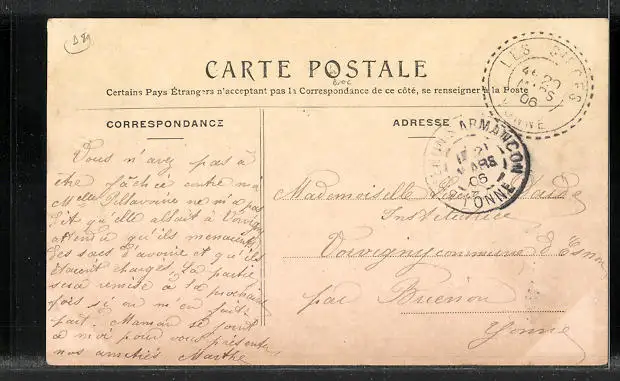 D 89
CARTE POSTALE
Certains Pays Étrangers n'acceptent pas la Correspondance de ce côté, se renseigner à la Poste
CORRESPONDANCE
ADRESSE
LES SIÈGES
20
MARS
06
YONNE
ARMANCON
21
MARS
06
YONNE
Vous n'avez pas à
être fâchée contre moi
Melle ne m'a pas
dit qu'elle allait à Vorvigny
attendu qu'ils menaient
des sacs d'avoine et qu'ils
étaient chargés. La partie
sera remise à la prochaine
fois si on m'en fait
part. Maman se joint
à moi pour vous présenter
nos amitiés Marthe
Mademoiselle
Institutrice
Vorvigny commune d'Esnon
par Brienon
Yonne